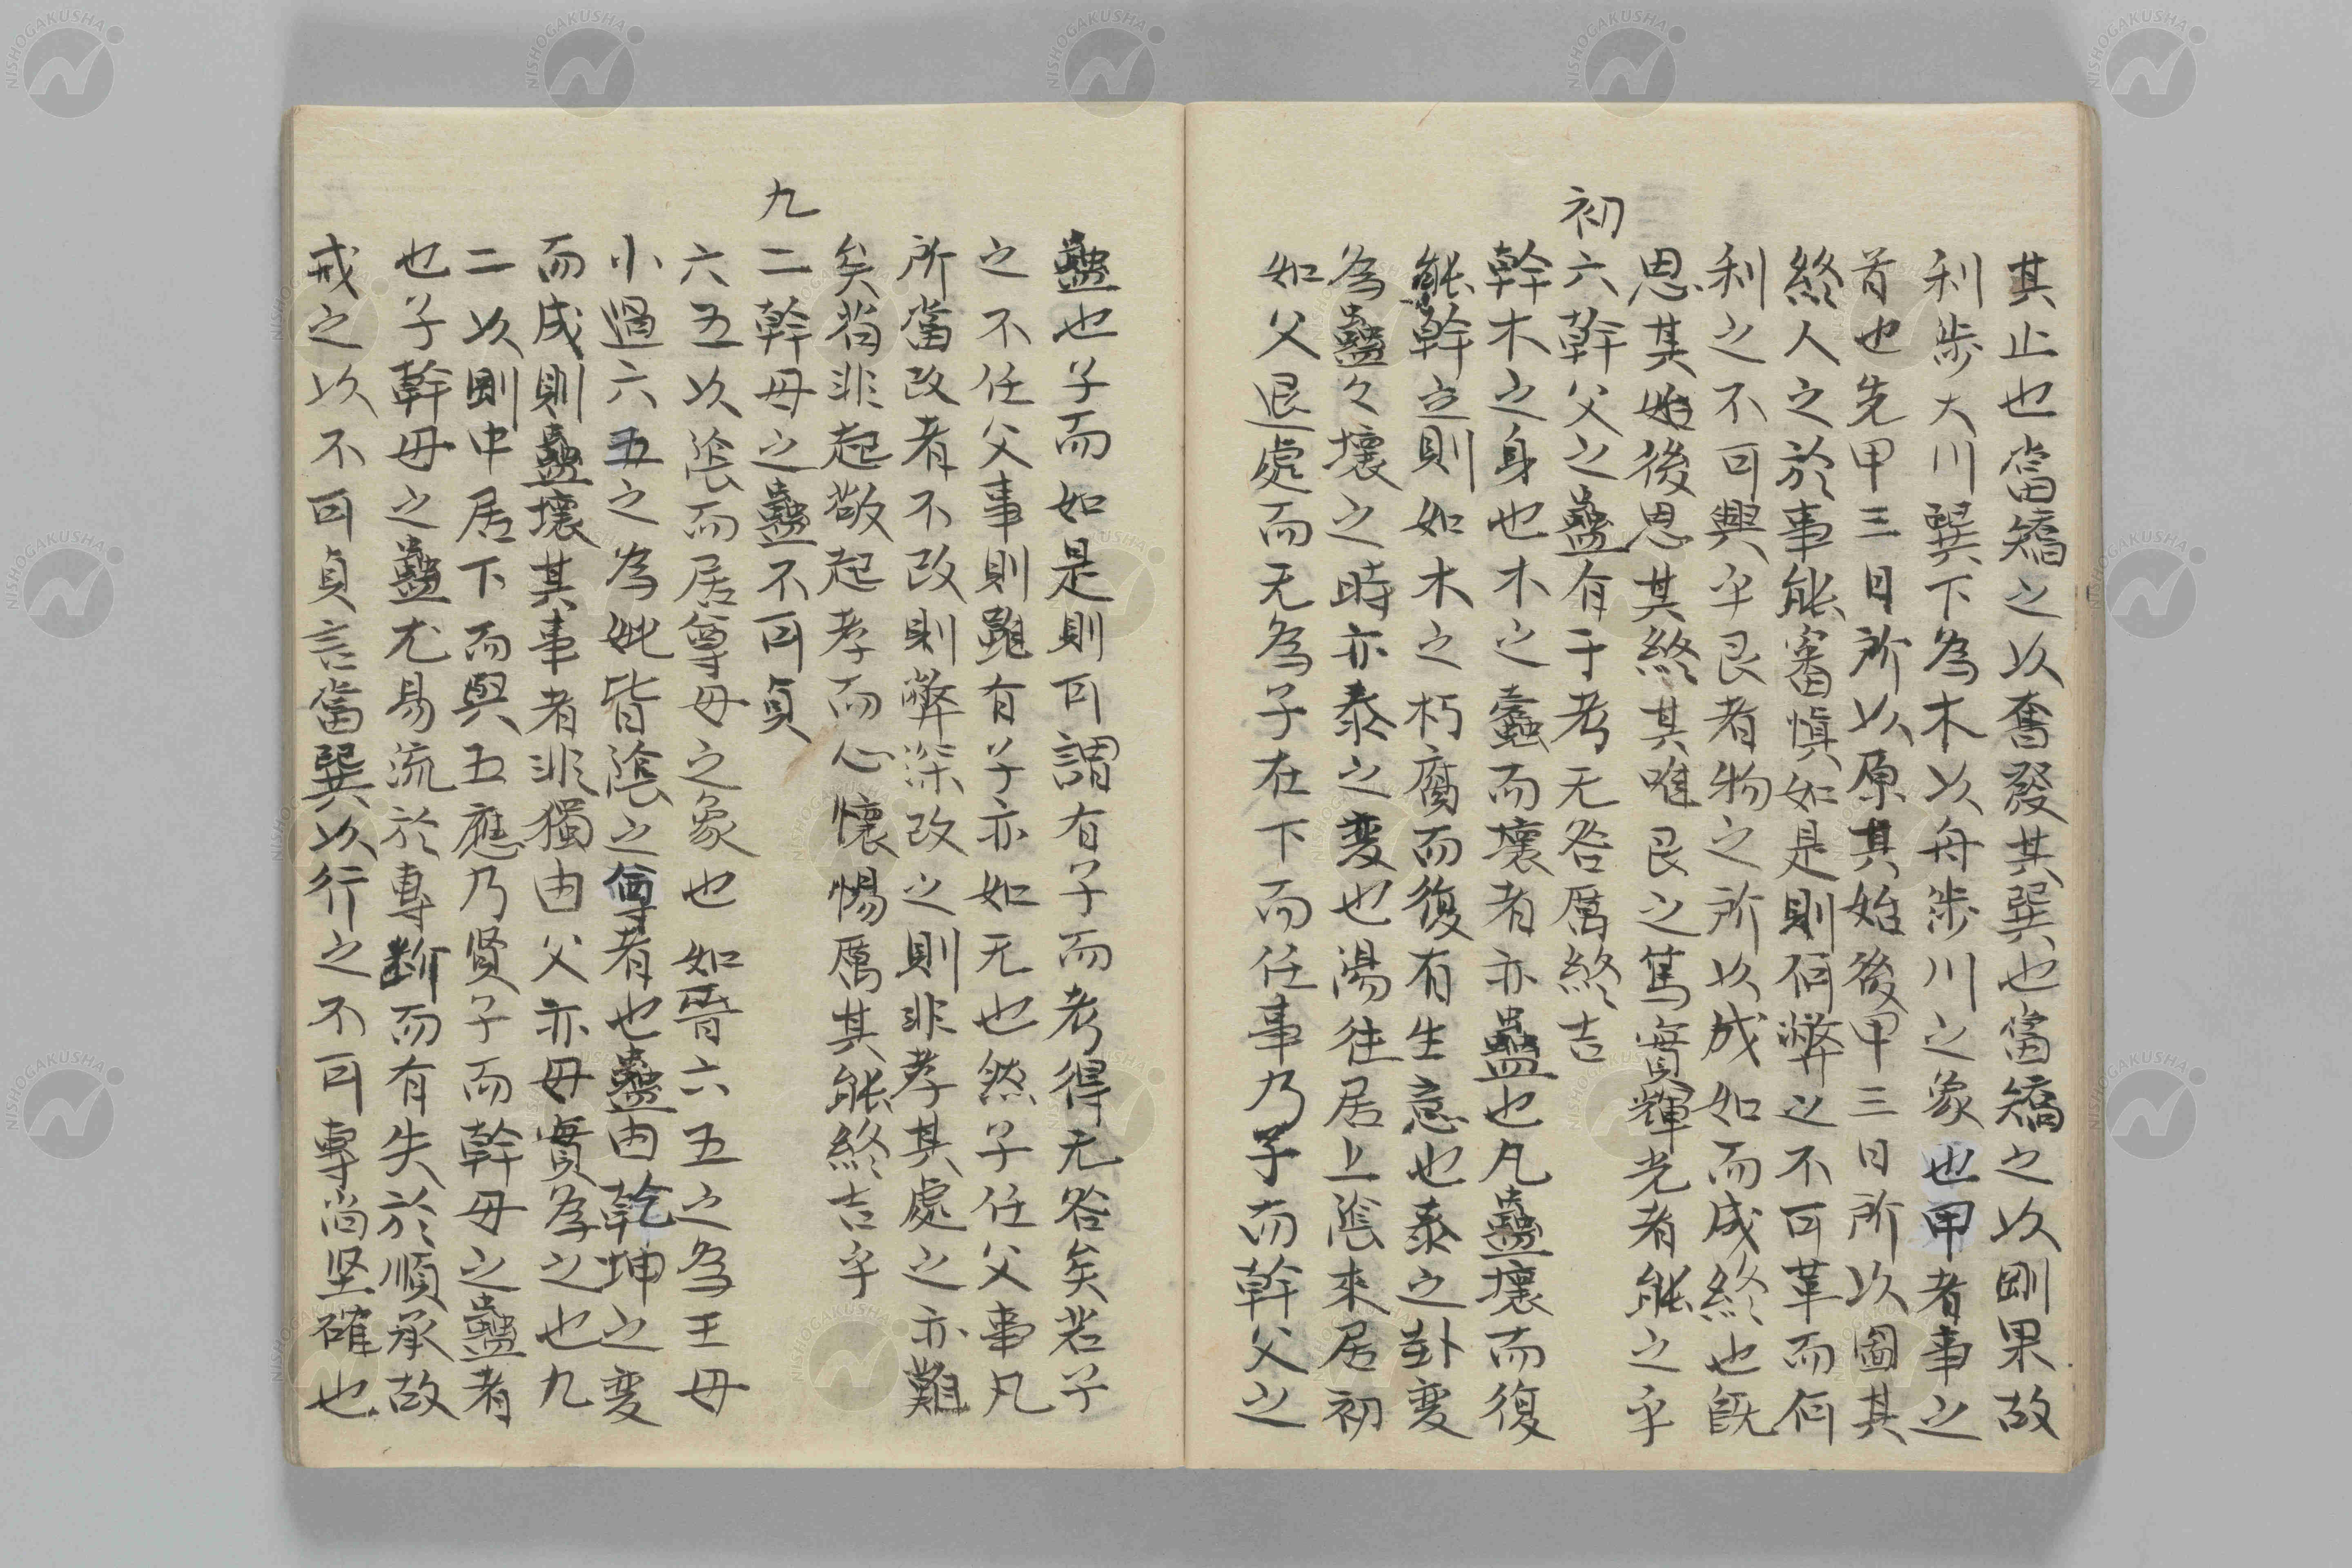 其止也當矯之以奮發其巽也當矯之以剛果故
利涉大川巽下為木以舟涉川之象也甲者事之
首也先甲三日所以原其始後甲三日所以圖其
終人之於事能審慎如是則何弊之不可革而何
利之不可興乎艮者物之所以成如而成終也既
思其始後思其終其唯艮之篤實輝光者能之乎
初六幹父之蠱有子考无咎厲終吉
幹木之身也木之蠹而壞者亦蠱也凡蠱壞而復
能幹之則如木之朽腐而復有生意也泰之卦變
為蠱々壞之時亦泰之変也湯往居上陰來居初
如父退處而无為子在下而任事乃子而幹父之
蠱也子而如是則可謂有子而考得无咎矣若子
之不任父事則雖有子亦如无也然子任父事凡
所當改者不改則弊深改之則非孝其處之亦難
矣苟非起敬起孝而心懷惕厲其能終吉乎
九二幹母之蠱不可貞
六五以陰而居尊母之象也如晉六五之為王母
小過六五之為妣皆陰之尊者也蠱由乾坤之変
而成則蠱壞其事者非獨由父亦母實為之也九
二以剛中居下而與五應乃賢子而幹母之蠱者
也子幹母之蠱尤易流於專斷而有失於順承故
戒之以不可貞言當巽以行之不可專尚坚確也
NISHOGAKUSHA